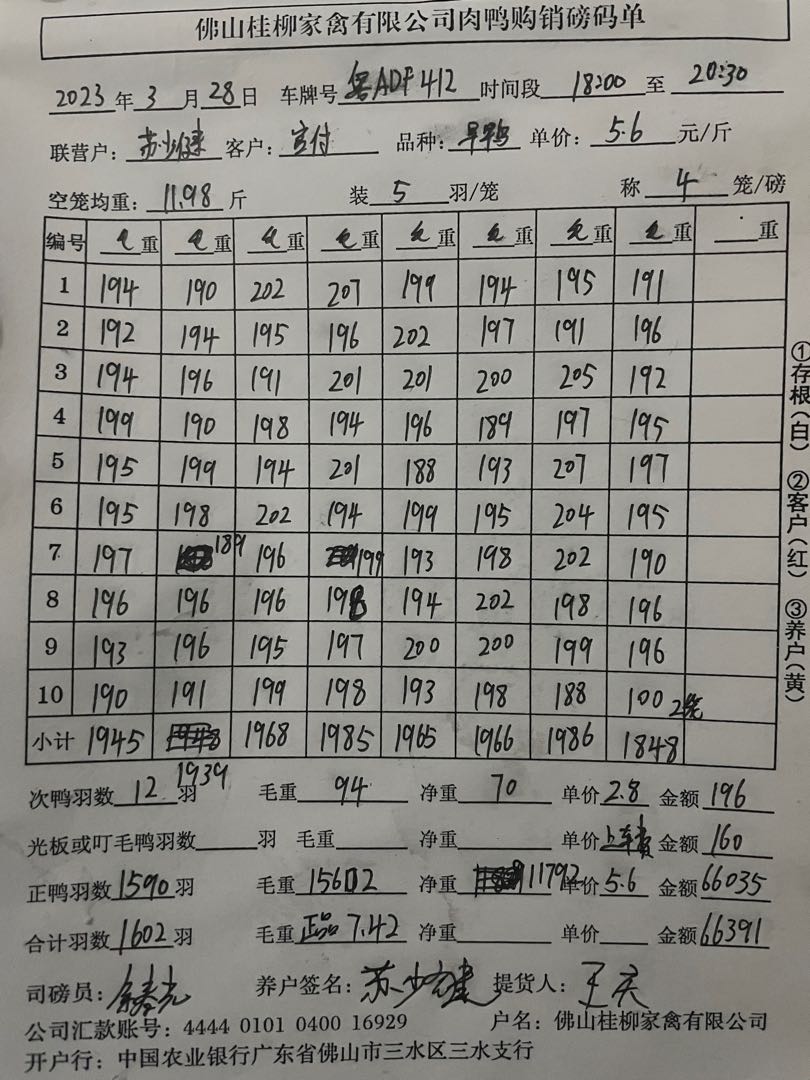 佛山桂柳家禽有限公司肉鸭购销磅码单
2023年3月28日 车牌号 粤ADF412 时间段 18:00 至 20:30
联营户：苏少健 客户： 品种：旱鸭 单价：5.6元/斤
空笼均重：11.98斤 装5羽/笼 称4笼/磅
编号 毛重 毛重 毛重 毛重 毛重 毛重 毛重 毛重 重
1 194 190 202 207 199 194 195 191
2 192 194 195 196 202 197 191 196
3 194 196 191 201 201 200 205 192
4 199 190 198 194 196 189 197 195
5 195 199 194 201 188 193 207 197
6 195 198 202 194 199 195 204 195
7 197 189 196 199 193 198 202 190
8 196 196 196 198 194 202 198 196
9 193 196 195 197 200 200 199 196
10 190 191 199 198 193 198 188 100 2笼
小计 1945 1939 1968 1985 1965 1966 1986 1848
次鸭羽数12羽 毛重94 净重70 单价2.8 金额196
光板或叮毛鸭羽数 羽 毛重 净重 单价上车费 金额160
正鸭羽数1590羽 毛重15602 净重11792 单价5.6 金额66035
合计羽数1602羽 毛重正品7.42 净重 单价 金额66391
司磅员： 养户签名：苏少健 提货人：
公司汇款账号：4444 0101 0400 16929 户名：佛山桂柳家禽有限公司
开户行：中国农业银行广东省佛山市三水区三水支行
①存根（白） ②客户（红） ③养户（黄）